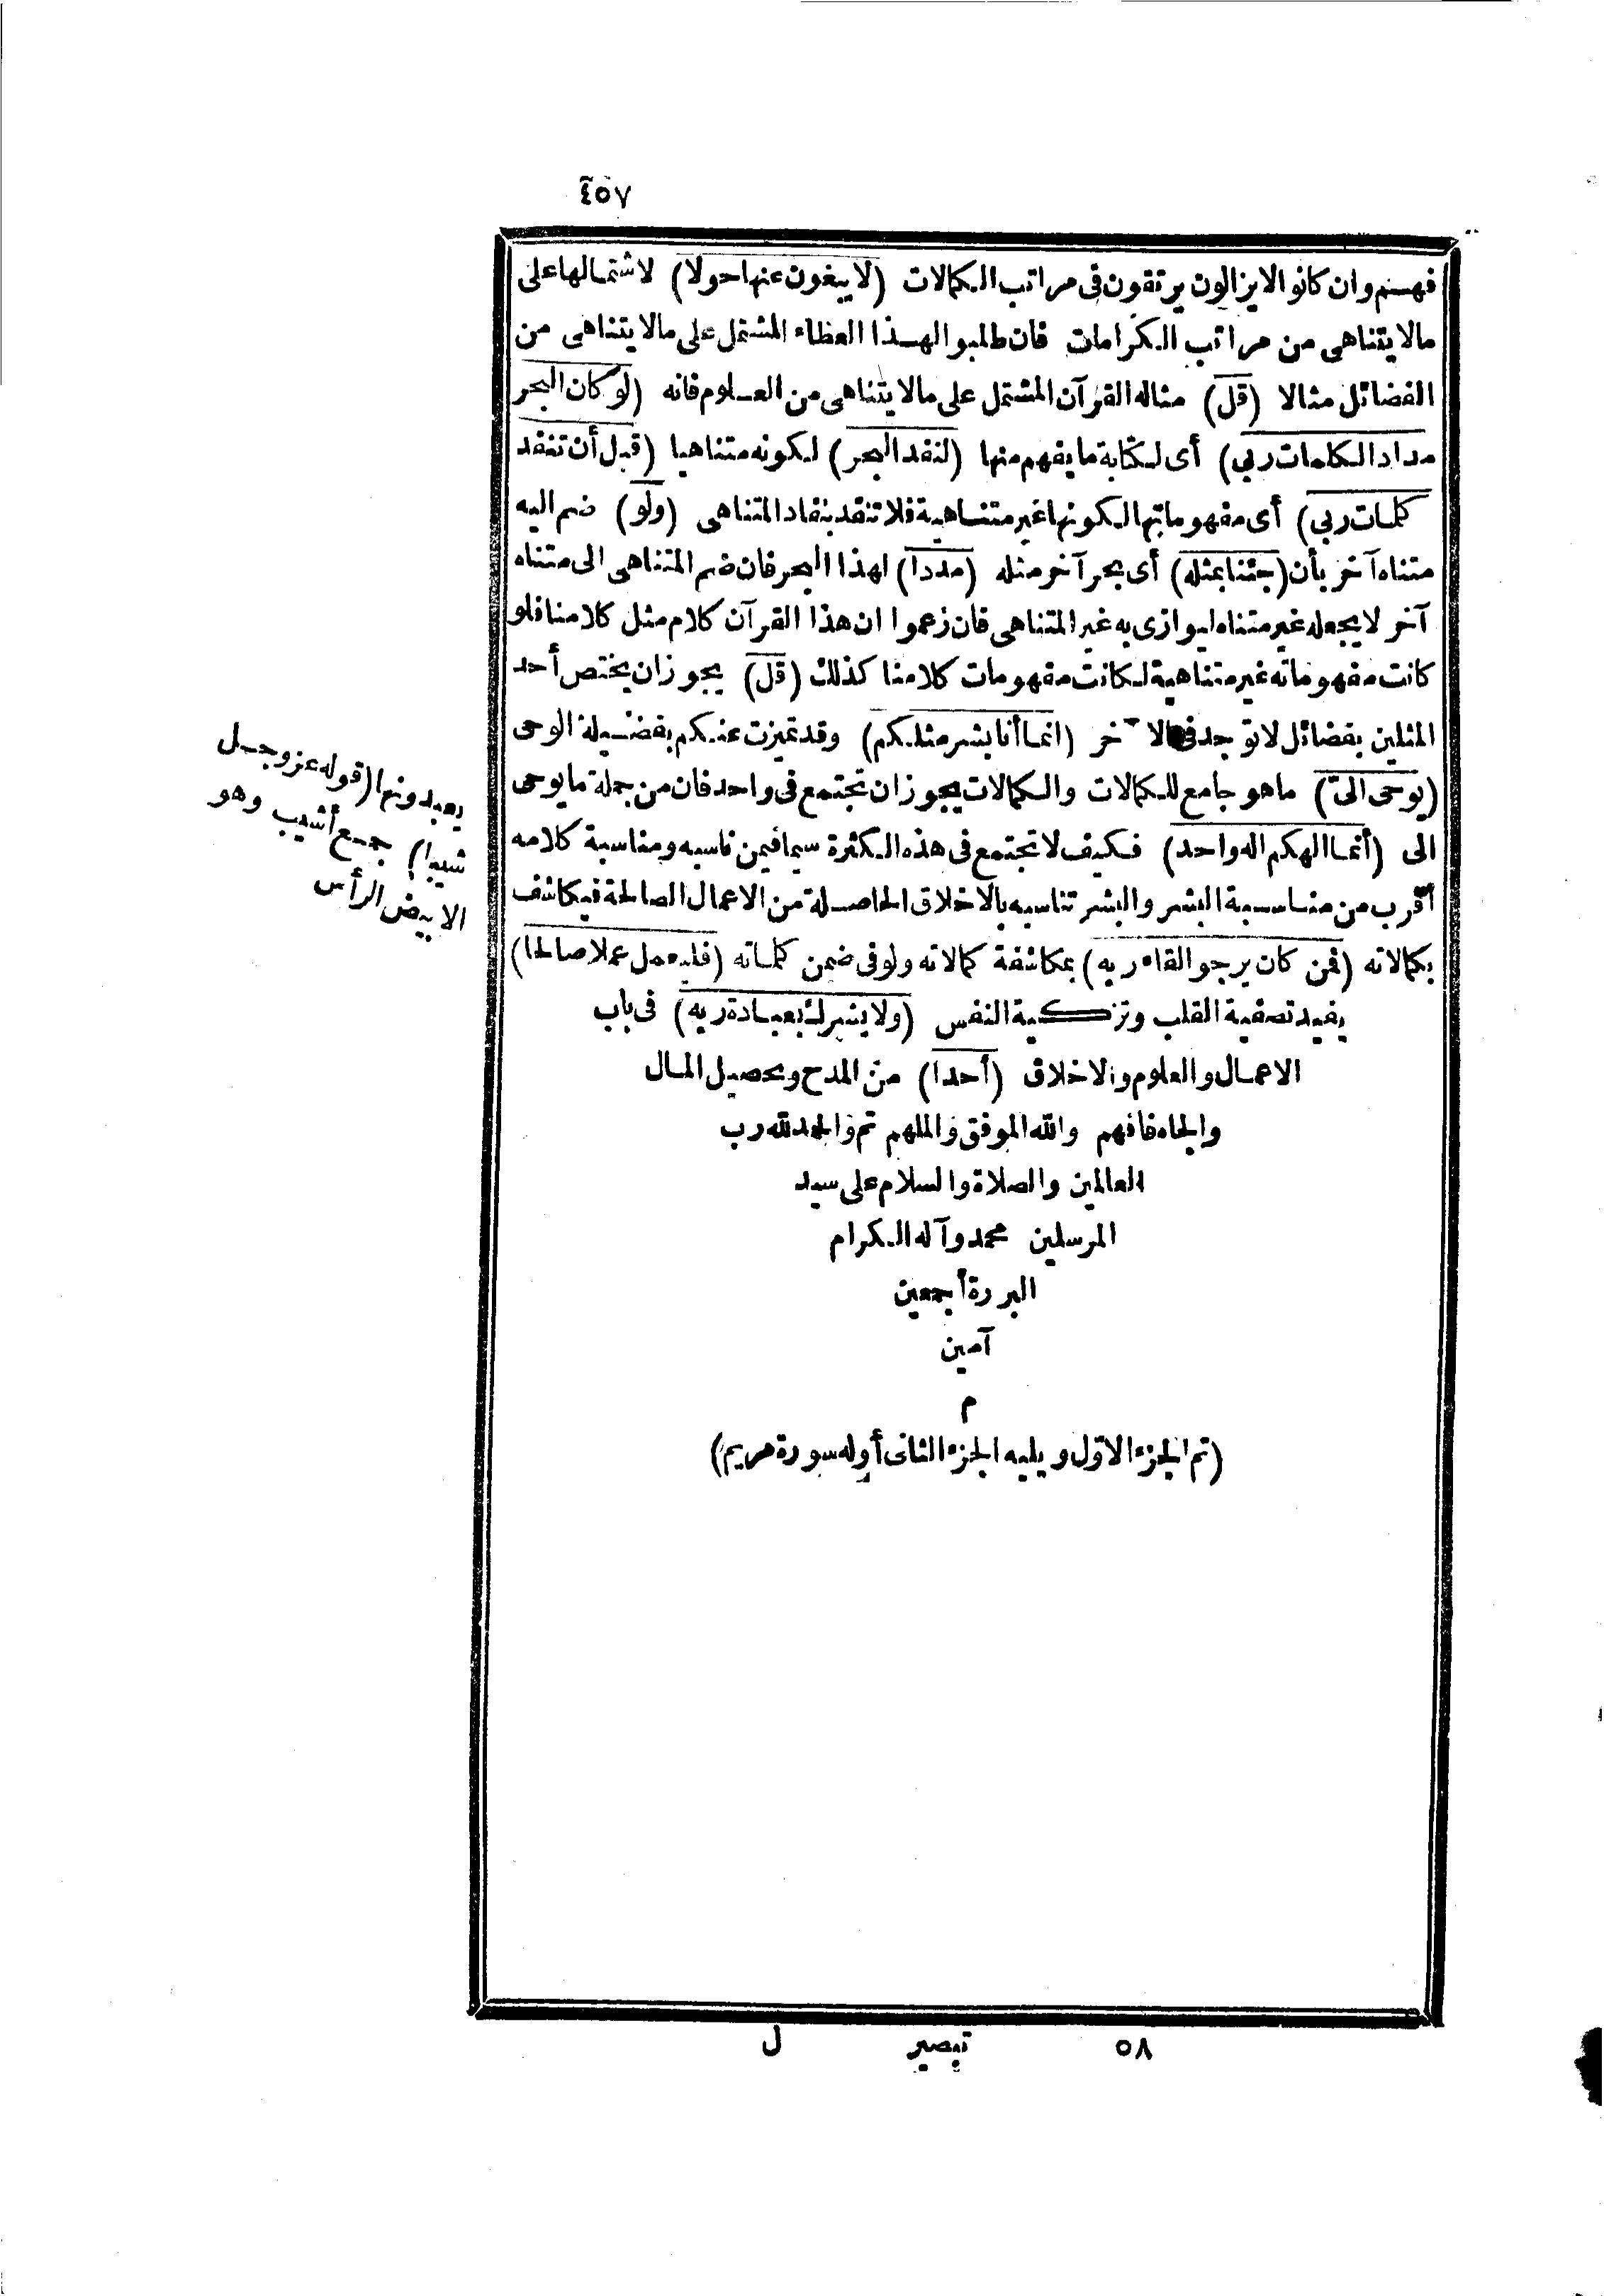 ٤٥٧
فهم وان كانوا لايزالون يرتقون فى مراتب الكمالات (لايبغون عنها حولا) لاشتمالها على
مالا يتناهى من مراتب الكرامات فان طلبوا لهذا العطاء المشتمل على مالا يتناهى من
الفضائل مثالا (قل) مثاله القرآن المشتمل على مالا يتناهى من العلوم فانه (لو كان البحر
مدادا لكلمات ربى) أى لكتابة ما يفهم منها (لنفد البحر) لكونه متناهيا (قبل أن تنفد
كلمات ربى) أى مفهوماتها لكونها غير متناهية فلا تنفد بنفاد المتناهى (ولو) ضم اليه
متناه آخر بأن (جئنا بمثله) أى بحر آخر مثله (مددا) لهذا البحر فان ضم المتناهى الى متناه
آخر لا يجعله غير متناه ليوازى به غير المتناهى فان زعموا ان هذا القرآن كلام مثل كلامنا فلو
كانت مفهوماته غير متناهية لكانت مفهومات كلامنا كذلك (قل) يجوز ان يختص أحد
المثلين بفضائل لا توجد فى الآخر (انما أنا بشر مثلكم) وقد تميزت عنكم بفضيلة الوحى
(يوحى الىّ) ما هو جامع للكمالات والكمالات يجوز ان تجتمع فى واحد فان من جملة ما يوحى
الى (أنما الهكم اله واحد) فكيف لا تجتمع فى هذه الكثرة سيما فيمن ناسبه ومناسبة كلامه
أقرب من مناسبة البشر والبشر تناسبه بالاخلاق الحاصلة من الاعمال الصالحة فيكاشف
بكمالاته (فمن كان يرجو القاء ربه) بمكاشفة كمالاته ولو فى ضمن كلماته (فليعمل عملا صالحا)
يفيد تصفية القلب وتزكية النفس (ولا يشرك بعبادة ربه) فى باب
الاعمال والعلوم والاخلاق (أحدا) من المدح وتحصيل المال
والجاه فافهم والله الموفق والملهم تم والحمد لله رب
العالمين والصلاة والسلام على سيد
المرسلين محمد وآله الكرام
البررة أجمعين
آمين
م
(تم الجزء الاوّل ويليه الجزء الثانى أوله سورة مريم)
يعبدونها (قوله عز وجل
شيبا) جمع أشيب وهو
الابيض الرأس
٥٨ تبصير ل